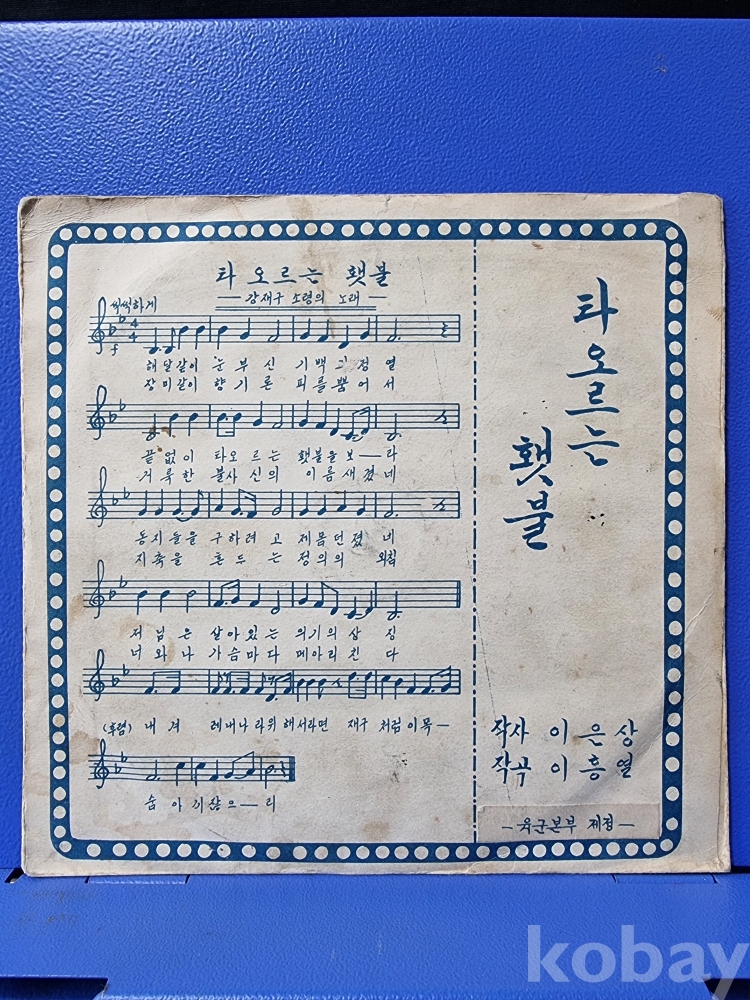 타오르는 횃불
— 강재구 소령의 노래 —
씩씩하게
4
4
f
해달같이 눈부신 기백과 정열
장미같이 향기론 피를 뿜어서
끝없이 타오르는 횃불을 보—라
거룩한 불사신의 이름 새겼네
동지들을 구하려고 제몸 던졌네
지축을 흔드는 정의의 외침
저님은 살아있는 의기의 상징
너와 나 가슴마다 메아리친다
(후렴) 내겨레 내나라 위해서라면 재구처럼 이목—
숨 아끼잖으—리
타오르는
횃불
작사 이은상
작곡 이흥열
— 육군본부 제정 —
kobay